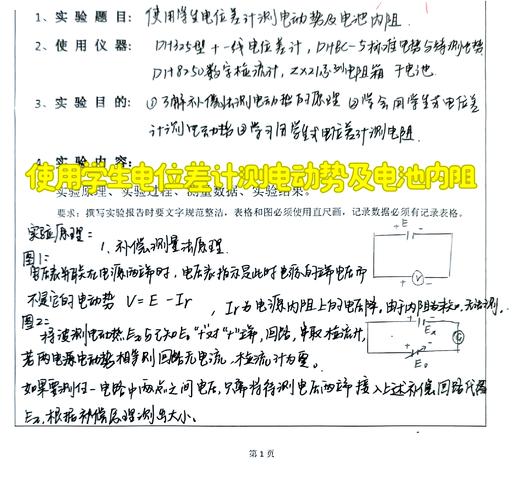 1、实 验 题 目： 使用学生电位差计测电动势及电池内阻.
2、使 用 仪 器： DH325型十一线电位差计，DHBC-5标准电势与待测电势
DH8250数字检流计，ZX21系列电阻箱 干电池.
3、实 验 目 的： ①了解补偿法测电动势的原理 ②学会用学生式电位差
计测电动势③学习用学生式电位差计测电阻.
4、实 验 内 容：
使用学生电位差计测电动势及电池内阻
实验原理、实验过程、测量数据、实验结果。
要求：撰写实验报告时要文字规范整洁，表格和图必须使用直尺画，记录数据必须有记录表格。
实验原理：
1. 补偿测量法原理.
图1：
电压表并联在电源两端时，电压表指示是此时电源的端电压而
不是它的电动势 V=E-Ir，Ir为电源内阻上的电压降。由于内阻，无法测.
图2：
将被测电动势Ex与已知E。"+"对"+"端，回路，串联检流计，
若两电源电动势相等则回路无电流，检流计为零。
如果要测任一电路中两点之间电压，只需将待测电压两端接入上述补偿回路代替
Ex，根据补偿原理测出大小。
E
V
Ex
G
E。
第 1 页